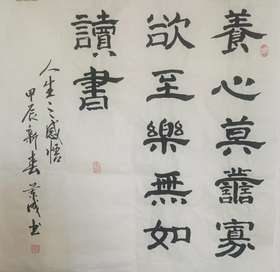 養心莫善寡
欲至樂無如
讀書
人生之感悟
甲辰新春